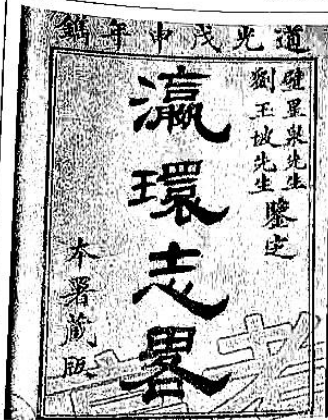 道光戊申年鐫
璧星泉先生
劉玉坡先生
鑒定
瀛環志畧
本署藏版